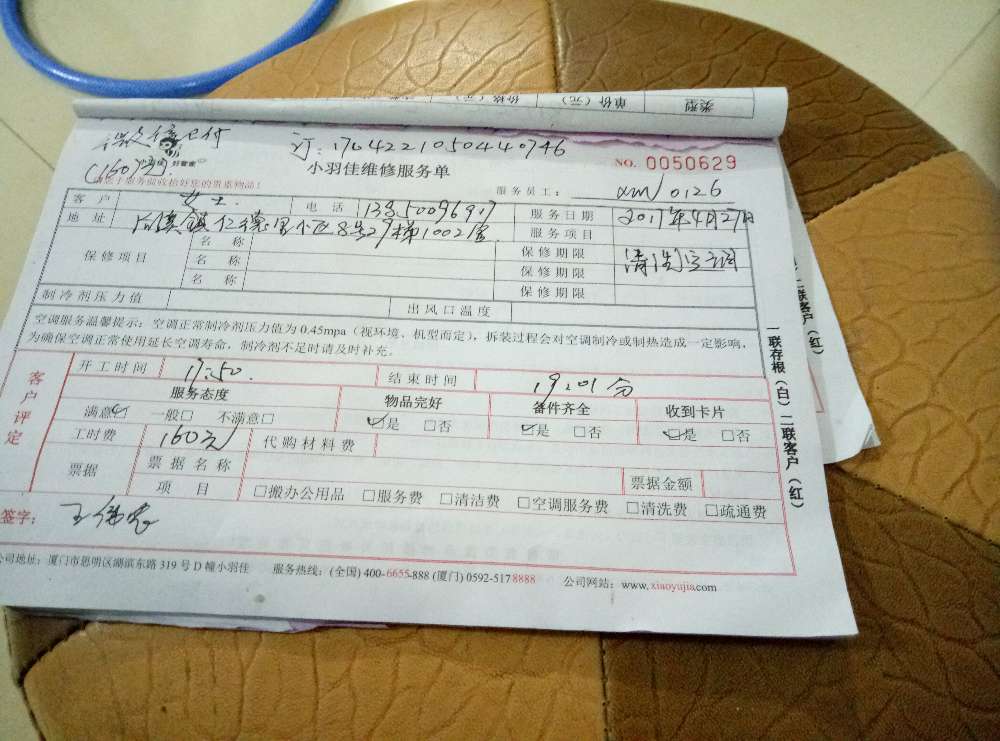 类型 单价(元) 价格(元)
微信已付 订:1704221050440746
(160)元
小羽佳 好管家
小羽佳维修服务单
NO. 0050629
请于服务前收拾好您的贵重物品!
服务员工: xm/0126
客户 女士 电话 13850096917 服务日期 2017年4月27日
地址 后溪镇仁德里小区8号27梯1002室 服务项目
保修项目 名称 保修期限 清洗空调
名称 保修期限
名称 保修期限
制冷剂压力值 出风口温度
空调服务温馨提示:空调正常制冷剂压力值为0.45mpa(视环境、机型而定),拆装过程会对空调制冷或制热造成一定影响,
为确保空调正常使用延长空调寿命,制冷剂不足时请及时补充。
客户评定
开工时间 17:50. 结束时间 19:01分
服务态度 物品完好 备件齐全 收到卡片
满意☑ 一般□ 不满意□ ☑是 □否 ☑是 □否 ☑是 □否
工时费 160元 代购材料费
票据 票据名称 票据金额
项目 □搬办公用品 □服务费 □清洁费 □空调服务费 □清洗费 □疏通费
签字:
公司地址:厦门市思明区湖滨东路319号D幢小羽佳 服务热线:(全国)400-6655-888(厦门)0592-5178888 公司网站:www.xiaoyujia.com
一联存根(白)二联客户(红)
二联客户(红)